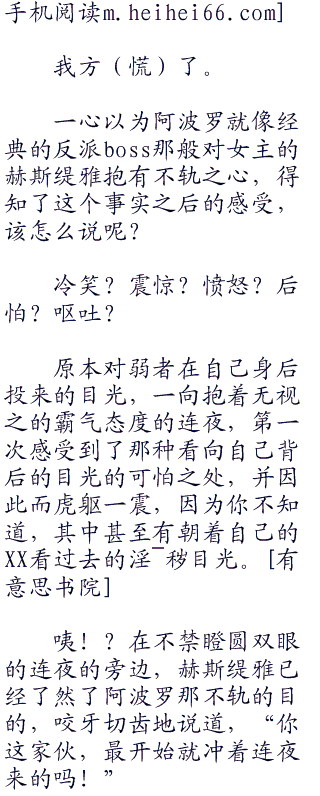 手机阅读m.heihei66.com]
我方（慌）了。
一心以为阿波罗就像经
典的反派boss那般对女主的
赫斯缇雅抱有不轨之心，得
知了这个事实之后的感受，
该怎么说呢？
冷笑？震惊？愤怒？后
怕？呕吐？
原本对弱者在自己身后
投来的目光，一向抱着无视
之的霸气态度的连夜，第一
次感受到了那种看向自己背
后的目光的可怕之处，并因
此而虎躯一震，因为你不知
道，其中甚至有朝着自己的
XX看过去的淫¯秽目光。[有
意思书院]
咦！？在不禁瞪圆双眼
的连夜的旁边，赫斯缇雅已
经了然了阿波罗那不轨的目
的，咬牙切齿地说道，“你
这家伙，最开始就冲着连夜
来的吗！”